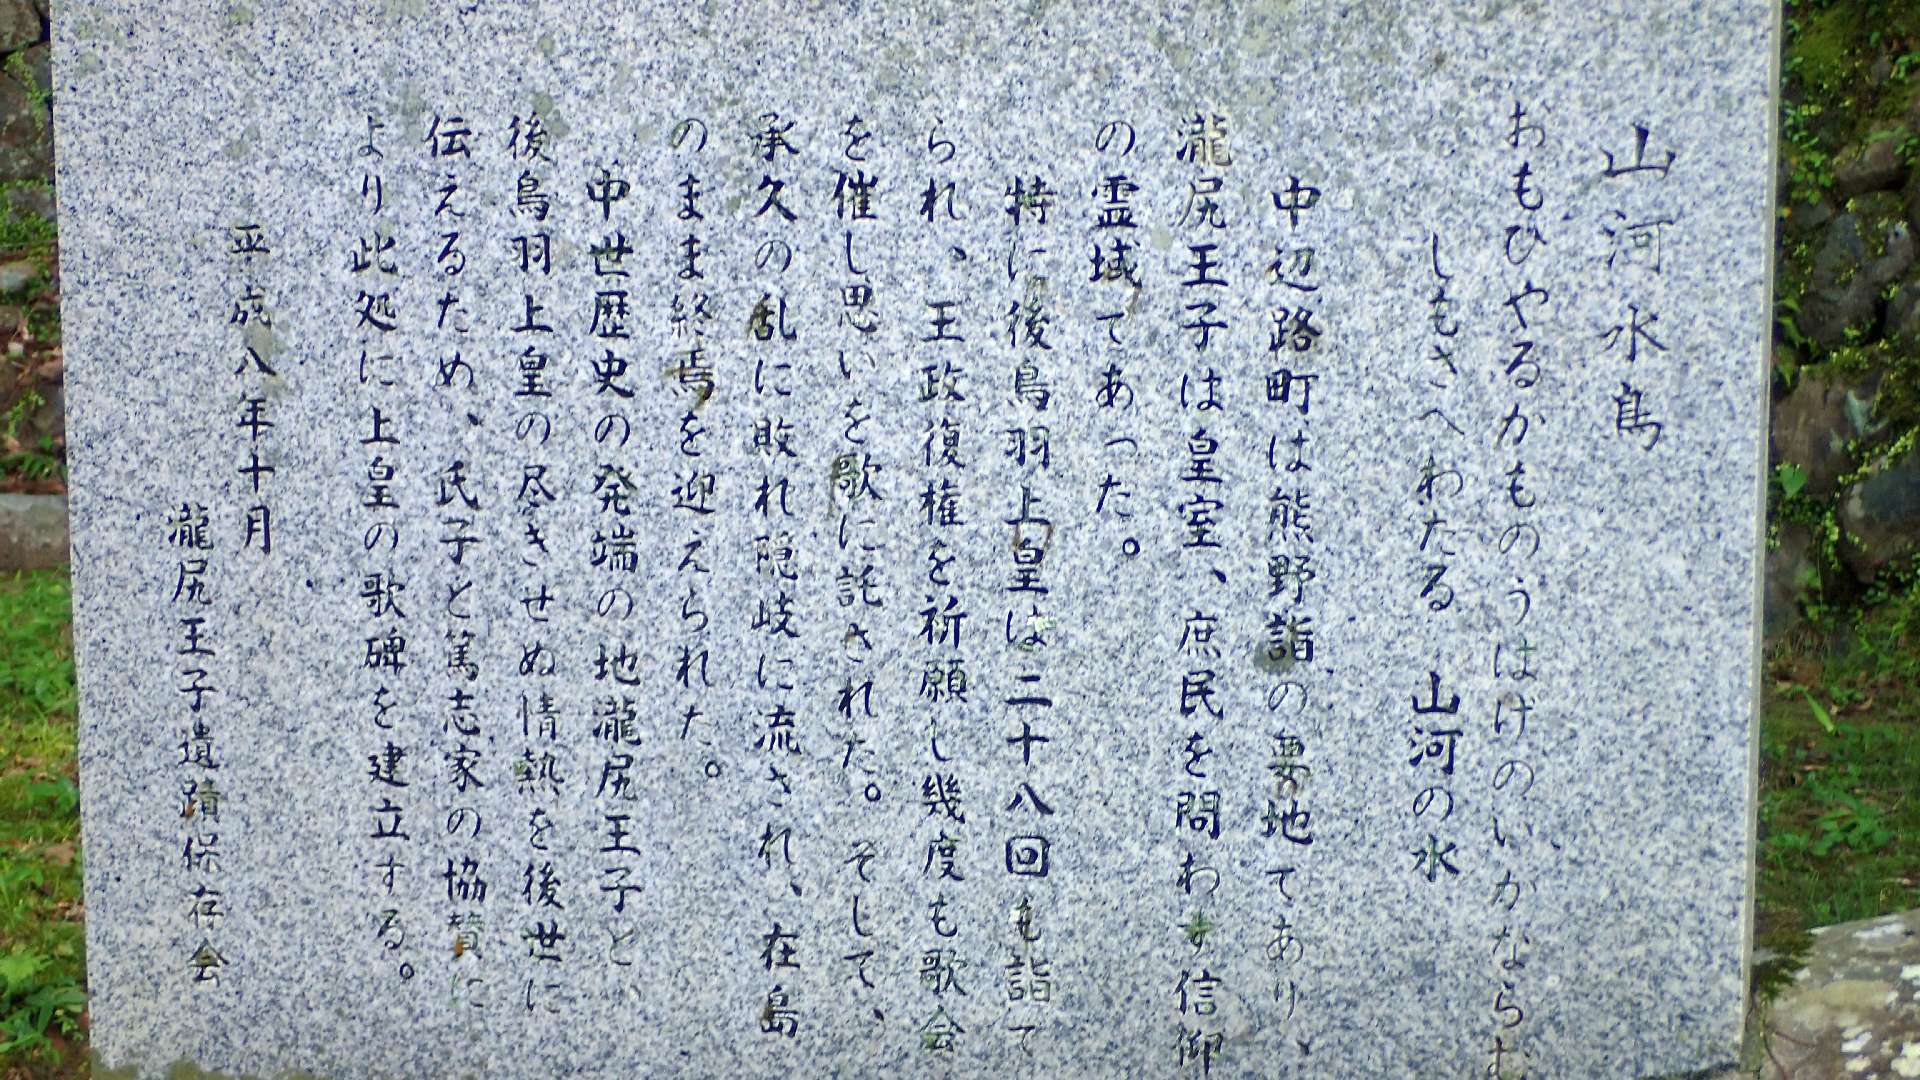 山河水鳥
おもひやるかものうはげのいかならむ
しもさへわたる 山河の水
中辺路町は熊野詣の要地であり、
瀧尻王子は皇室、庶民を問わず信仰
の霊域であった。
特に後鳥羽上皇は二十八回も詣で
られ、王政復権を祈願し幾度も歌会
を催し思いを歌に託された。そして、
承久の乱に敗れ隠岐に流され、在島
のまま終焉を迎えられた。
中世歴史の発端の地瀧尻王子と、
後鳥羽上皇の尽きせぬ情熱を後世に
伝えるため、氏子と篤志家の協賛に
より此処に上皇の歌碑を建立する。
平成八年十月
瀧尻王子遺蹟保存会